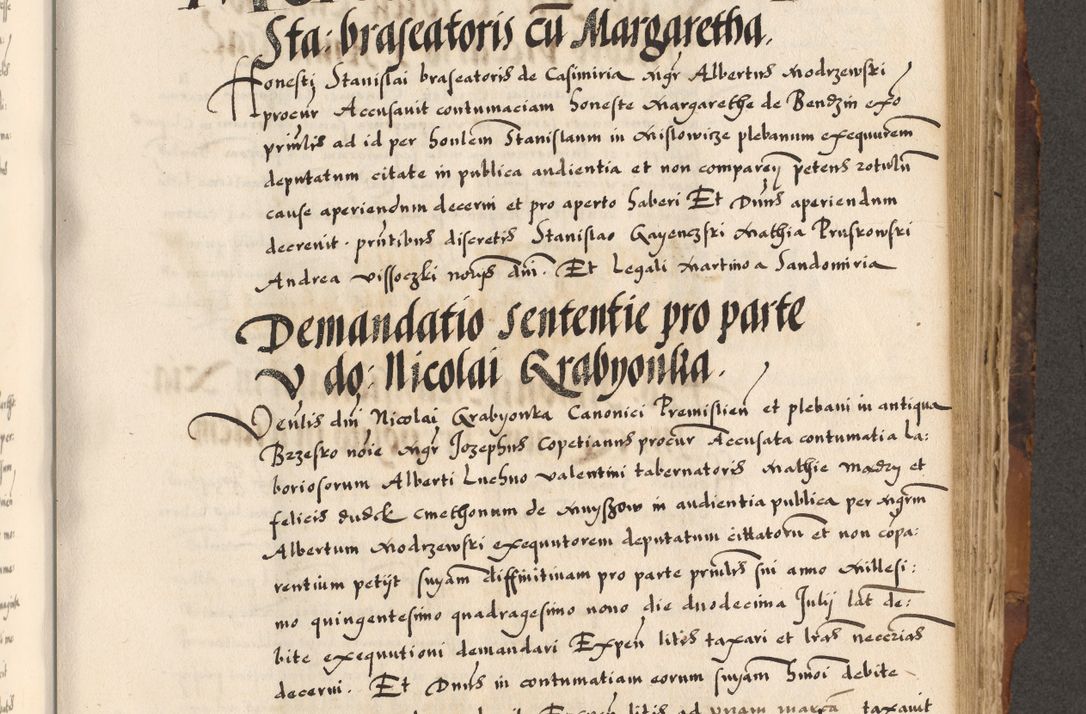 Sta: braseatoris cū Margaretha.
Honesti Stanislai braseatoris de Casimiria Mgr Albertus Modrzewski
procur Accusavit contumaciam honeste Margarethe de Bendzin ex
prinlis ad id per honlem Stanislaum in Mislowicze plebanum exequutem
deputatum citate in publica audientia et non comparen petens rotulū
cause aperiendum decerni et pro aperto haberi Et Dnus aperiendum
decrevit. pntibus discretis Stanislao Gayenczski Mathia Pruskowski
Andrea Vissoczki notys dni. Et Legali Martino a Sandomiria
Demandatio sententie pro parte
V do: Nicolai Grabyonka.
Venlis dni Nicolai Grabyonka Canonici Premislien et plebani in antiqua
Brzesko noie Mgr Jozephus Copetianus procur Accusata contumatia la:
boriosorum Alberti Luchno Valentini tabernatoris Mathie Madry et
felicis dudek cmethonum de Muyszow in audientia publica per Mgrm
Albertum Modrzewski exequutorem deputatum cittatorū et non cōpa:
rentium petijt suyam diffinitivam pro parte prinlis sui anno Millesi:
mo quingentesimo quadragesimo nono die duodecima Julij lat de:
bite exequutioni demandari Expen litis taxari et lras neccrias
decerni. Et Dnus in contumatiam eorum suyam hmoi debite
Expen litis ad unam marcā taxavit